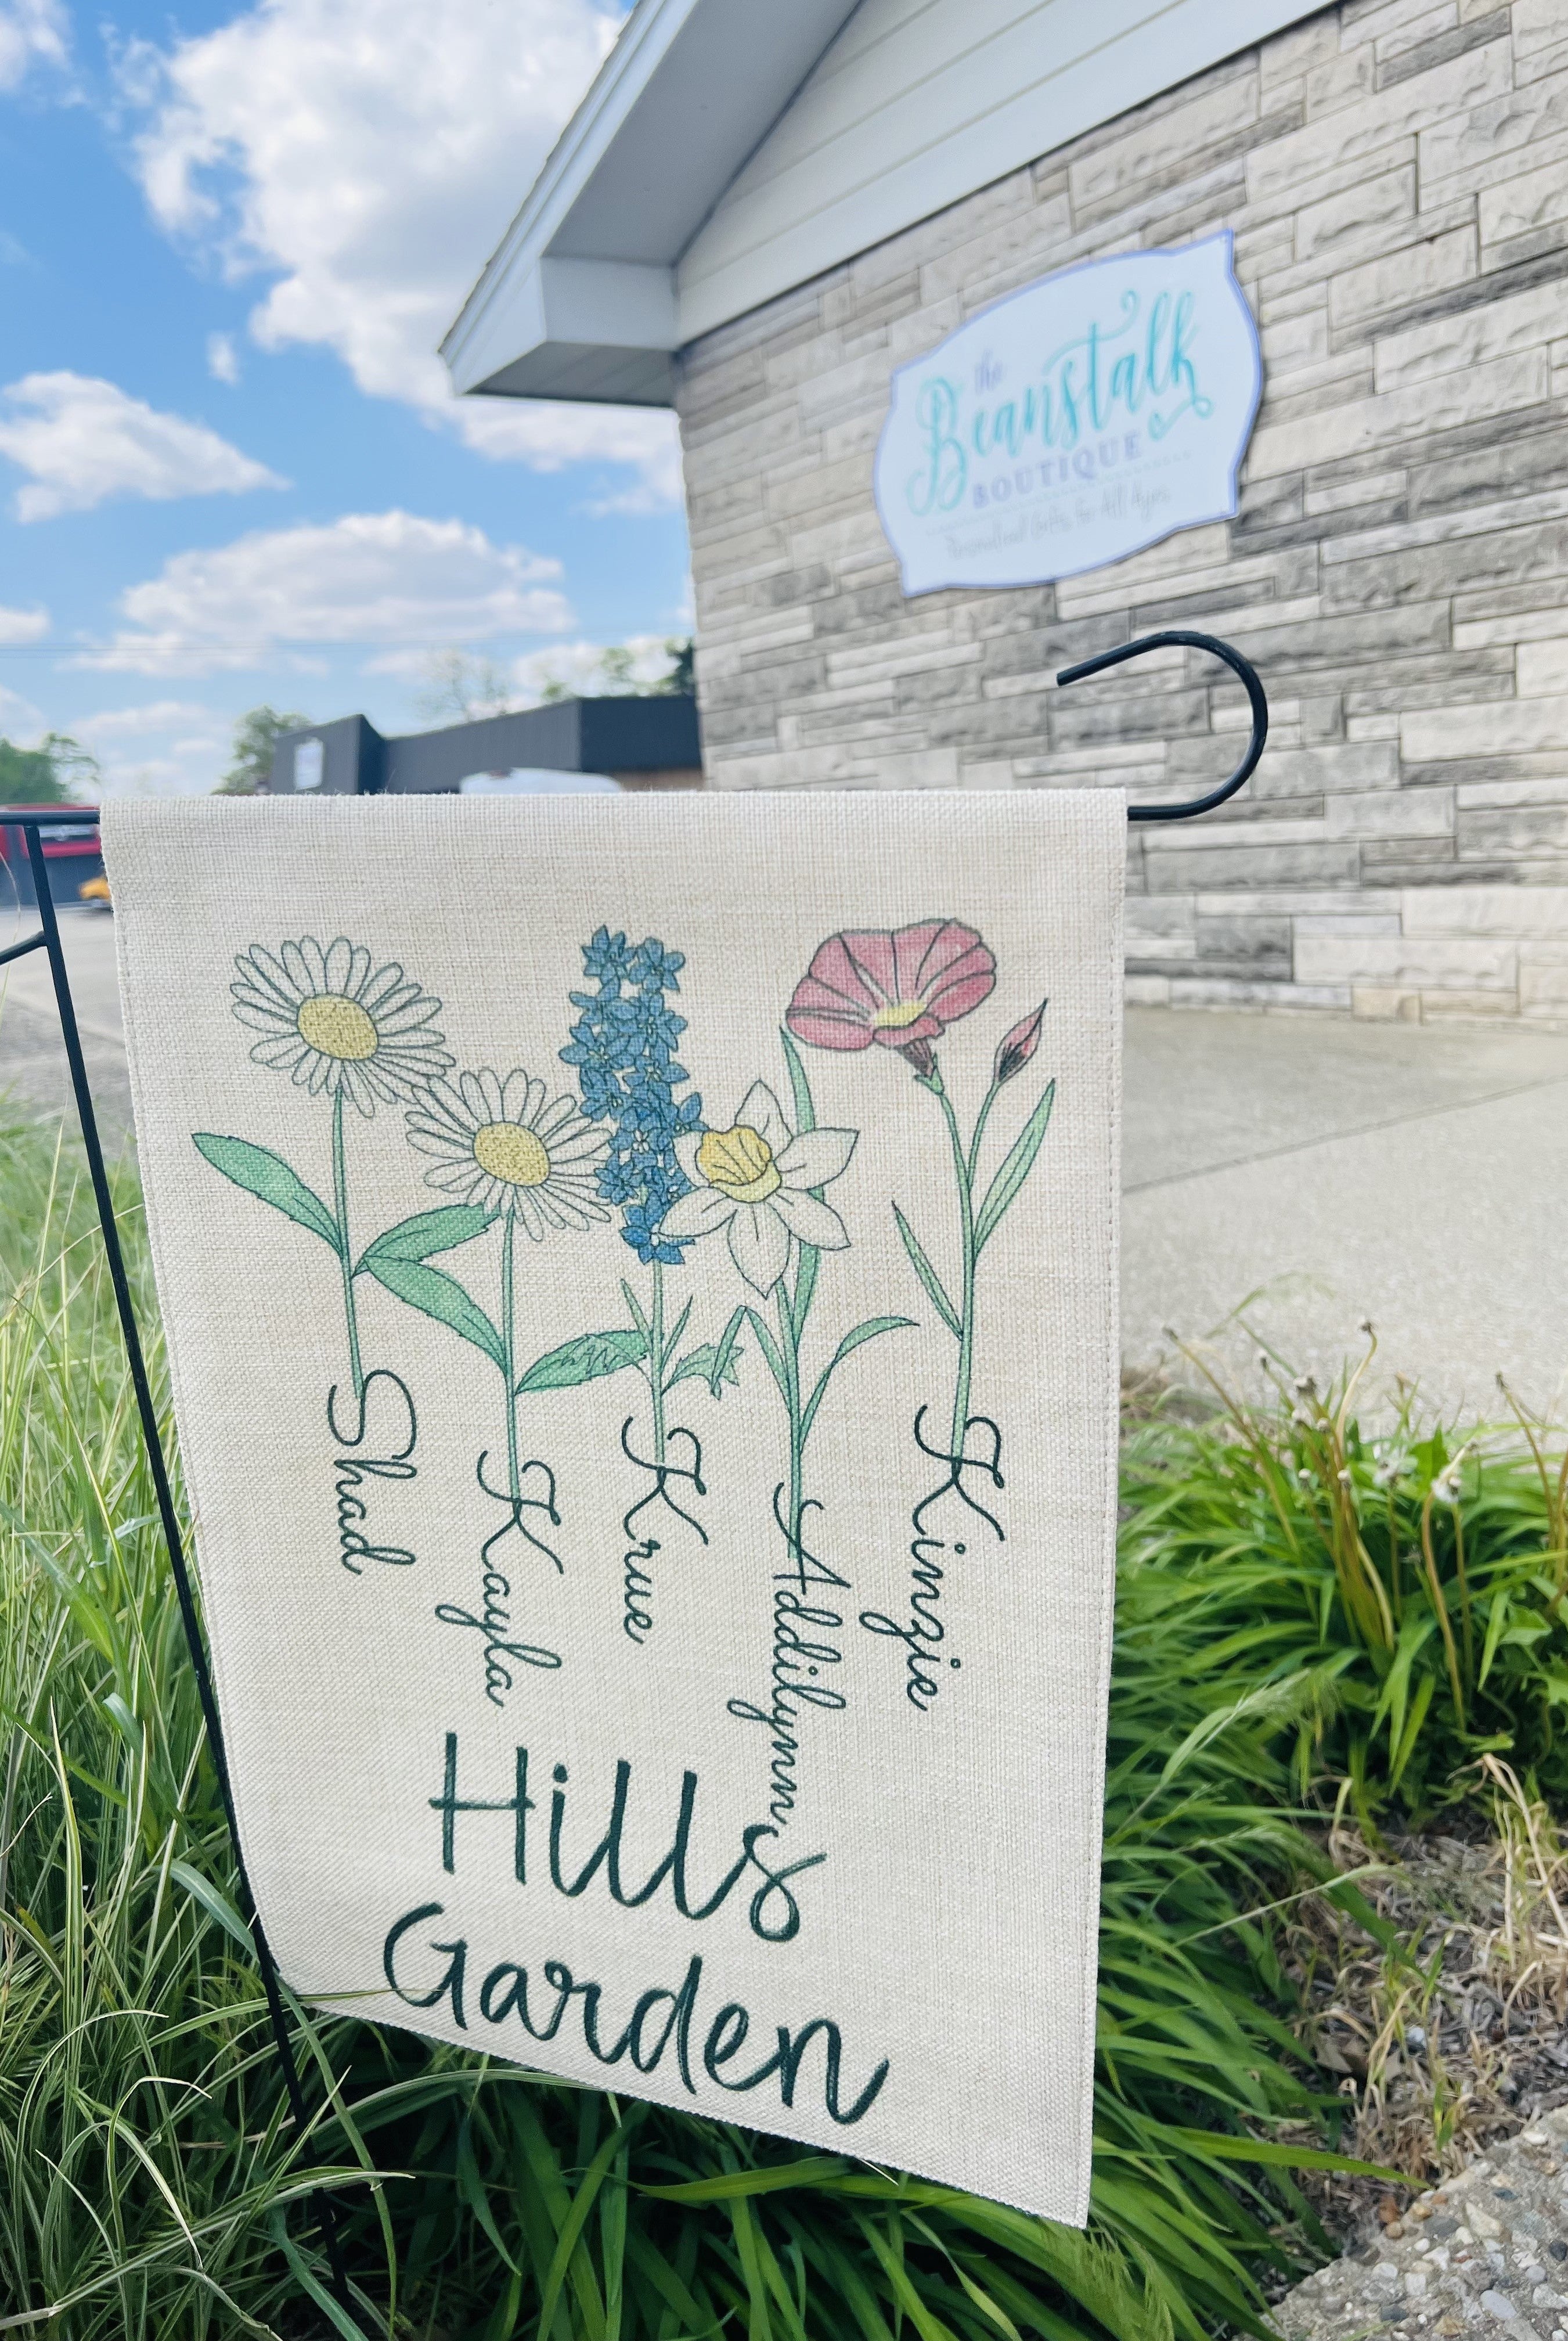 the
Beanstalk
BOUTIQUE
Personalized Gifts for All Ages
Shad
Kayla
Krue
Addilynn
Kinzie
Hills
Garden